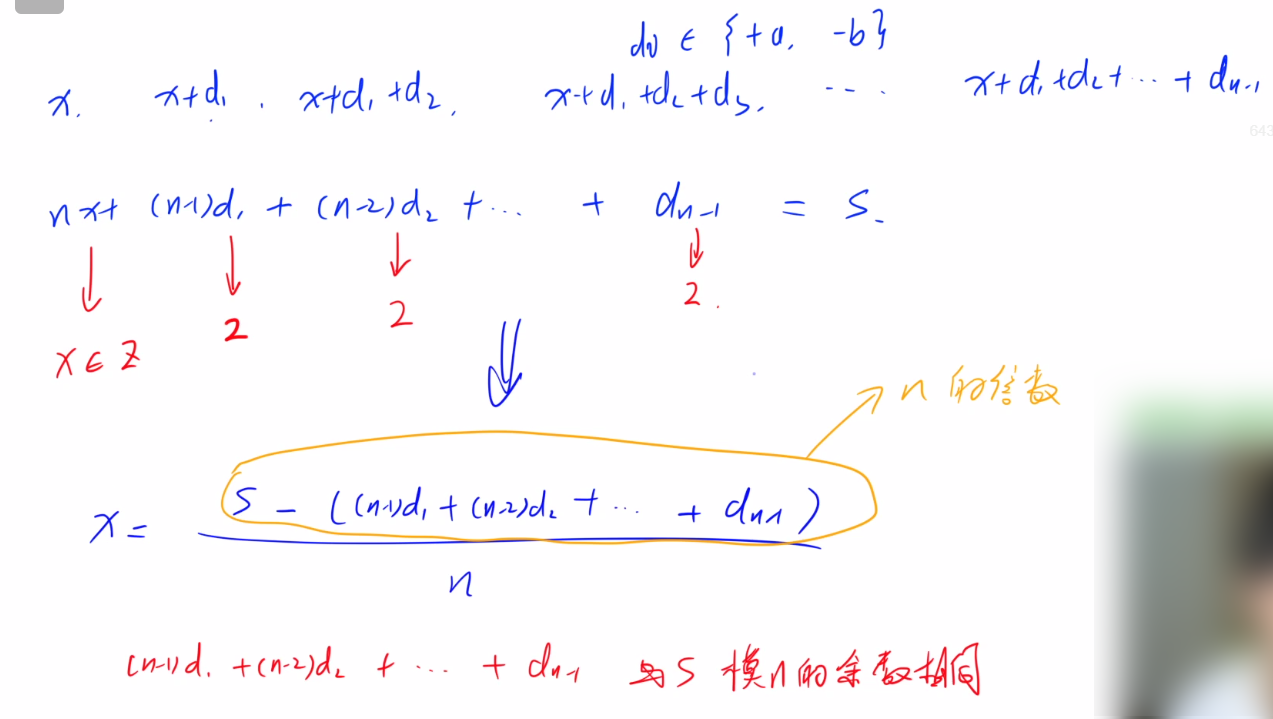 di ∈ {+a, -b}
x, x+d₁, x+d₁+d₂, x+d₁+d₂+d₃, ... x+d₁+d₂+...+dₙ₋₁
643
nx+ (n-1)d₁ + (n-2)d₂ +... + dₙ₋₁ = S.
↓ ↓ ↓ ↓
x∈Z 2 2 2.
⇓
n的倍数
x= S - ((n-1)d₁+(n-2)d₂+... + dₙ₋₁)
n
(n-1)d₁+(n-2)d₂ + ... + dₙ₋₁ 与S模n的余数相同